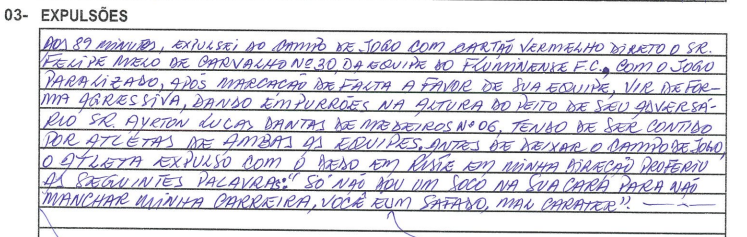 03- EXPULSÕES
AOS 89 MINUTOS, EXPULSEI DO CAMPO DE JOGO COM CARTÃO VERMELHO DIRETO O SR.
FELIPE MELO DE CARVALHO Nº 30, DA EQUIPE DO FLUMINENSE F.C., COM O JOGO
PARALIZADO, APÓS MARCAÇÃO DE FALTA A FAVOR DE SUA EQUIPE, VIR DE FOR-
MA AGRESSIVA, DANDO EMPURRÕES NA ALTURA DO PEITO DE SEU ADVERSÁ-
RIO SR. AYRTON LUCAS DANTAS DE MEDEIROS Nº 06, TENDO DE SER CONTIDO
POR ATLETAS DE AMBAS AS EQUIPES, ANTES DE DEIXAR O CAMPO DE JOGO,
O ATLETA EXPULSO COM O DEDO EM RISTE EM MINHA DIREÇÃO PROFERIU
AS SEGUINTES PALAVRAS: "SÓ NÃO DOU UM SOCO NA SUA CARA PARA NÃO
MANCHAR MINHA CARREIRA, VOCÊ E UM SAFADO, MAU CARATER".